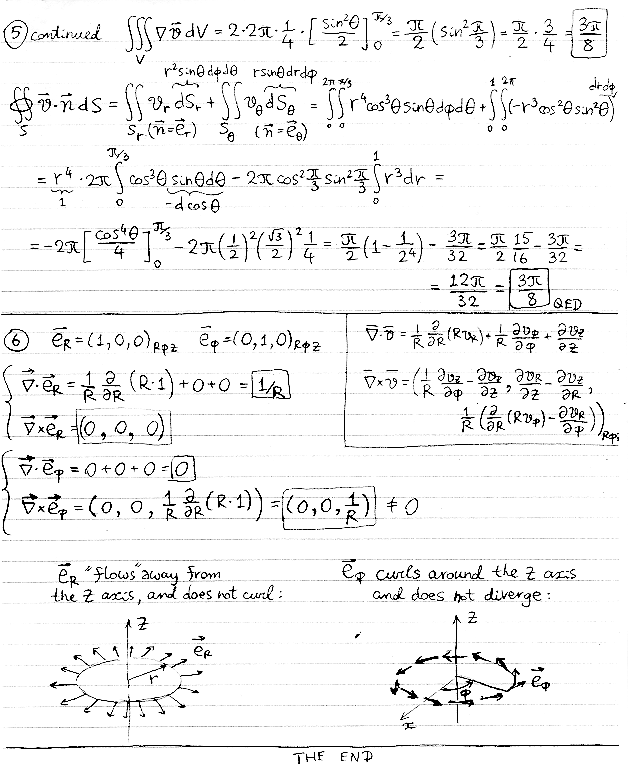 ⑤ continued ∭_V ∇v⃗ dV = 2·2π·1/4·[sin²θ/2]₀^{π/3} = π/2 (sin² π/3) = π/2 · 3/4 = 3π/8
r²sinθdφdθ rsinθdrdφ
∯_S v⃗·n⃗ dS = ∬_{S_r (n⃗=e⃗_r)} v_r dS_r + ∬_{S_θ (n⃗=e⃗_θ)} v_θ dS_θ = ∫₀^{2π}∫₀^{π/3} r⁴cos³θ sinθdφdθ + ∫₀^1∫₀^{2π} (-r³cos²θ sin²θ) drdφ
= r⁴ · 2π ∫₀^{π/3} cos³θ sinθdθ - 2π cos² π/3 sin² π/3 ∫₀^1 r³dr =
1 -dcosθ
= -2π [cos⁴θ/4]₀^{π/3} - 2π (1/2)² (√3/2)² 1/4 = π/2 (1 - 1/2⁴) - 3π/32 = π/2 15/16 - 3π/32 =
= 12π/32 = 3π/8 QED
⑥ e⃗_R = (1,0,0)_{RφZ} e⃗_φ = (0,1,0)_{RφZ}
∇⃗·v⃗ = 1/R ∂/∂R (Rv_R) + 1/R ∂v_φ/∂φ + ∂v_z/∂z
∇⃗·e⃗_R = 1/R ∂/∂R (R·1) + 0 + 0 = 1/R
∇⃗×v⃗ = (1/R ∂v_z/∂φ - ∂v_φ/∂z, ∂v_R/∂z - ∂v_z/∂R,
∇⃗×e⃗_R = (0, 0, 0)
1/R (∂/∂R (Rv_φ) - ∂v_R/∂φ))_{Rφz}
∇⃗·e⃗_φ = 0 + 0 + 0 = 0
∇⃗×e⃗_φ = (0, 0, 1/R ∂/∂R (R·1)) = (0, 0, 1/R) ≠ 0
e⃗_R "flows" away from
the z axis, and does not curl:
e⃗_φ curls around the z axis
and does not diverge:
z
e⃗_R
r
z
e⃗_φ
φ
x
THE END